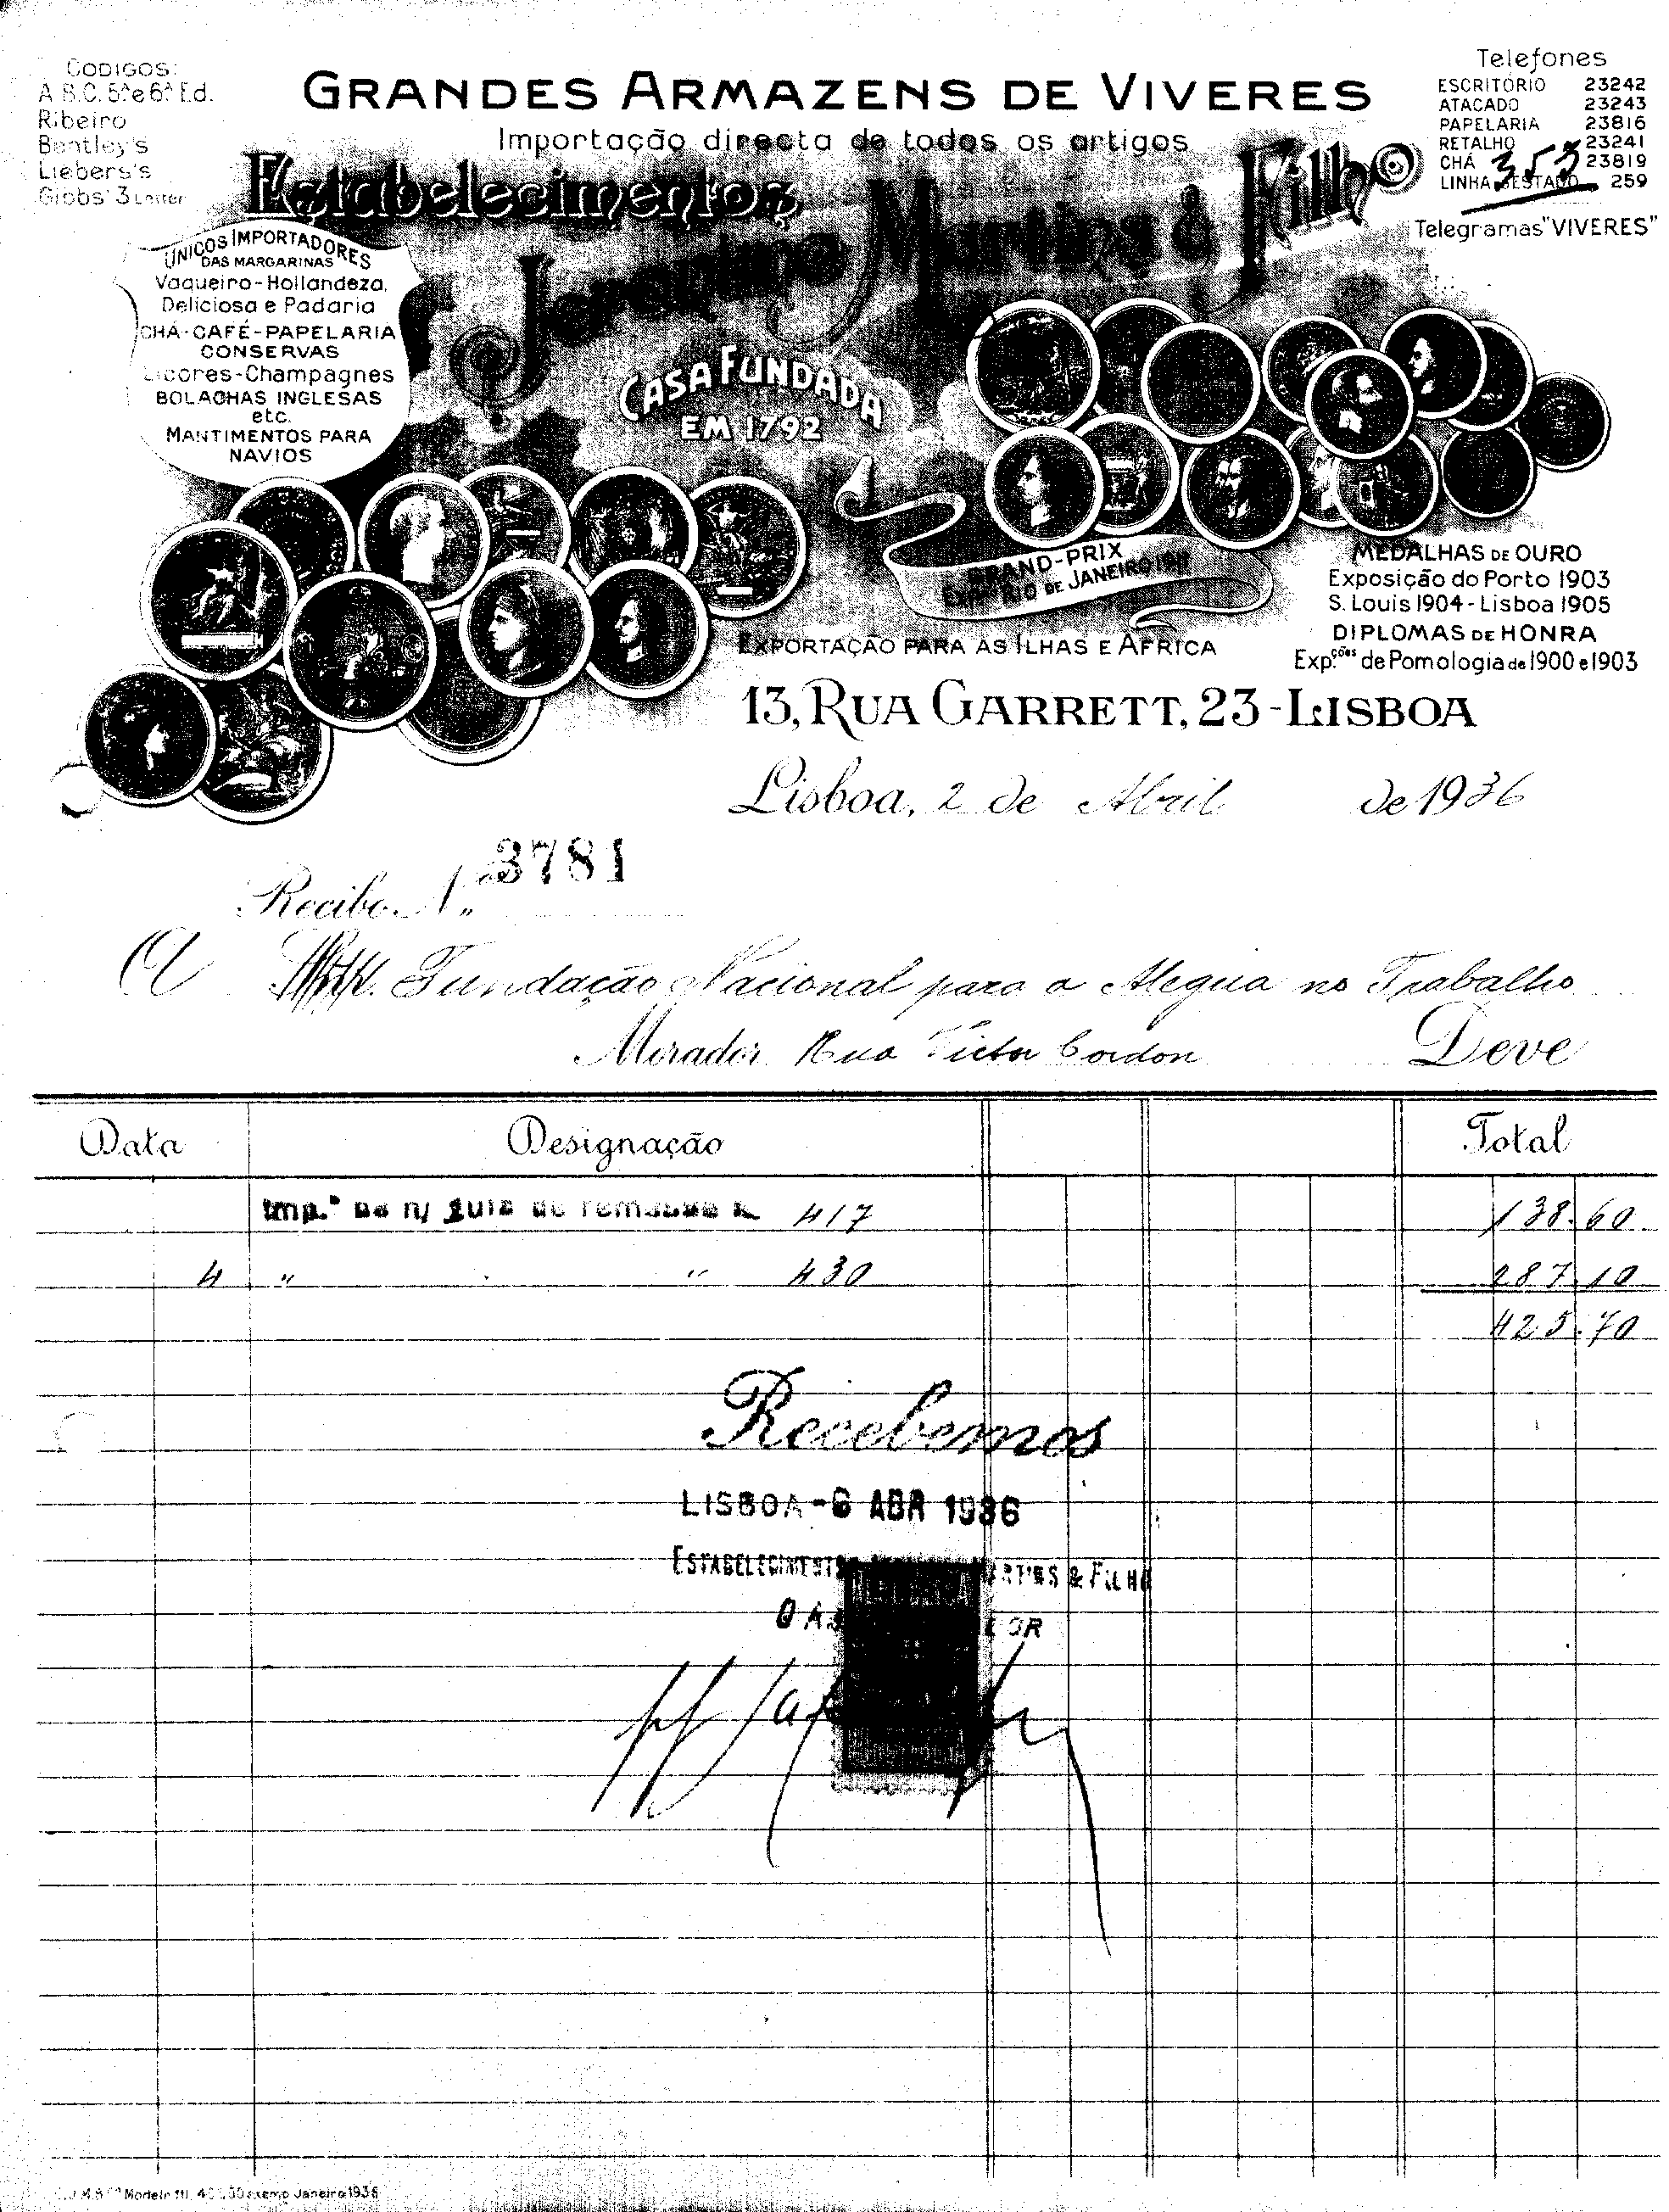 CODIGOS:
A.B.C. 5ª e 6ª Ed.
Ribeiro
Bentley's
Liebers's
Gibbs' 3 Letter
GRANDES ARMAZENS DE VIVERES
Importação directa de todos os artigos
Estabelecimentos
Jeronimo Martins & Filho
Telefones
ESCRITÓRIO 23242
ATACADO 23243
PAPELARIA 23816
RETALHO 23241
CHÁ 23819
LINHA ESTADO 259
353
Telegramas "VIVERES"
UNICOS IMPORTADORES
DAS MARGARINAS
Vaqueiro-Hollandeza,
Deliciosa e Padaria
CHÁ-CAFÉ-PAPELARIA
CONSERVAS
Licores-Champagnes
BOLACHAS INGLESAS
etc.
MANTIMENTOS PARA
NAVIOS
CASA FUNDADA
EM 1792
GRAND-PRIX
RIO DE JANEIRO
EXPORTAÇÃO PARA AS ILHAS E AFRICA
MEDALHAS DE OURO
Exposição do Porto 1903
S. Louis 1904 - Lisboa 1905
DIPLOMAS DE HONRA
Exp.ções de Pomologia de 1900 e 1903
13, RUA GARRETT, 23 - LISBOA
Lisboa, 2 de Abril de 1936
Recibo N.º 3781
A Fundação Nacional para a Alegria no Trabalho
Morador Rua Victor Cordon Deve
Data Designação Total
Imp.º da n/ guia de remessa 417 138.60
4 " " 430 287.10
425.70
Recebemos
LISBOA -6 ABR 1936
ESTABELECIMENTOS MARTINS & FILHO
Modelo 111 Janeiro 1936